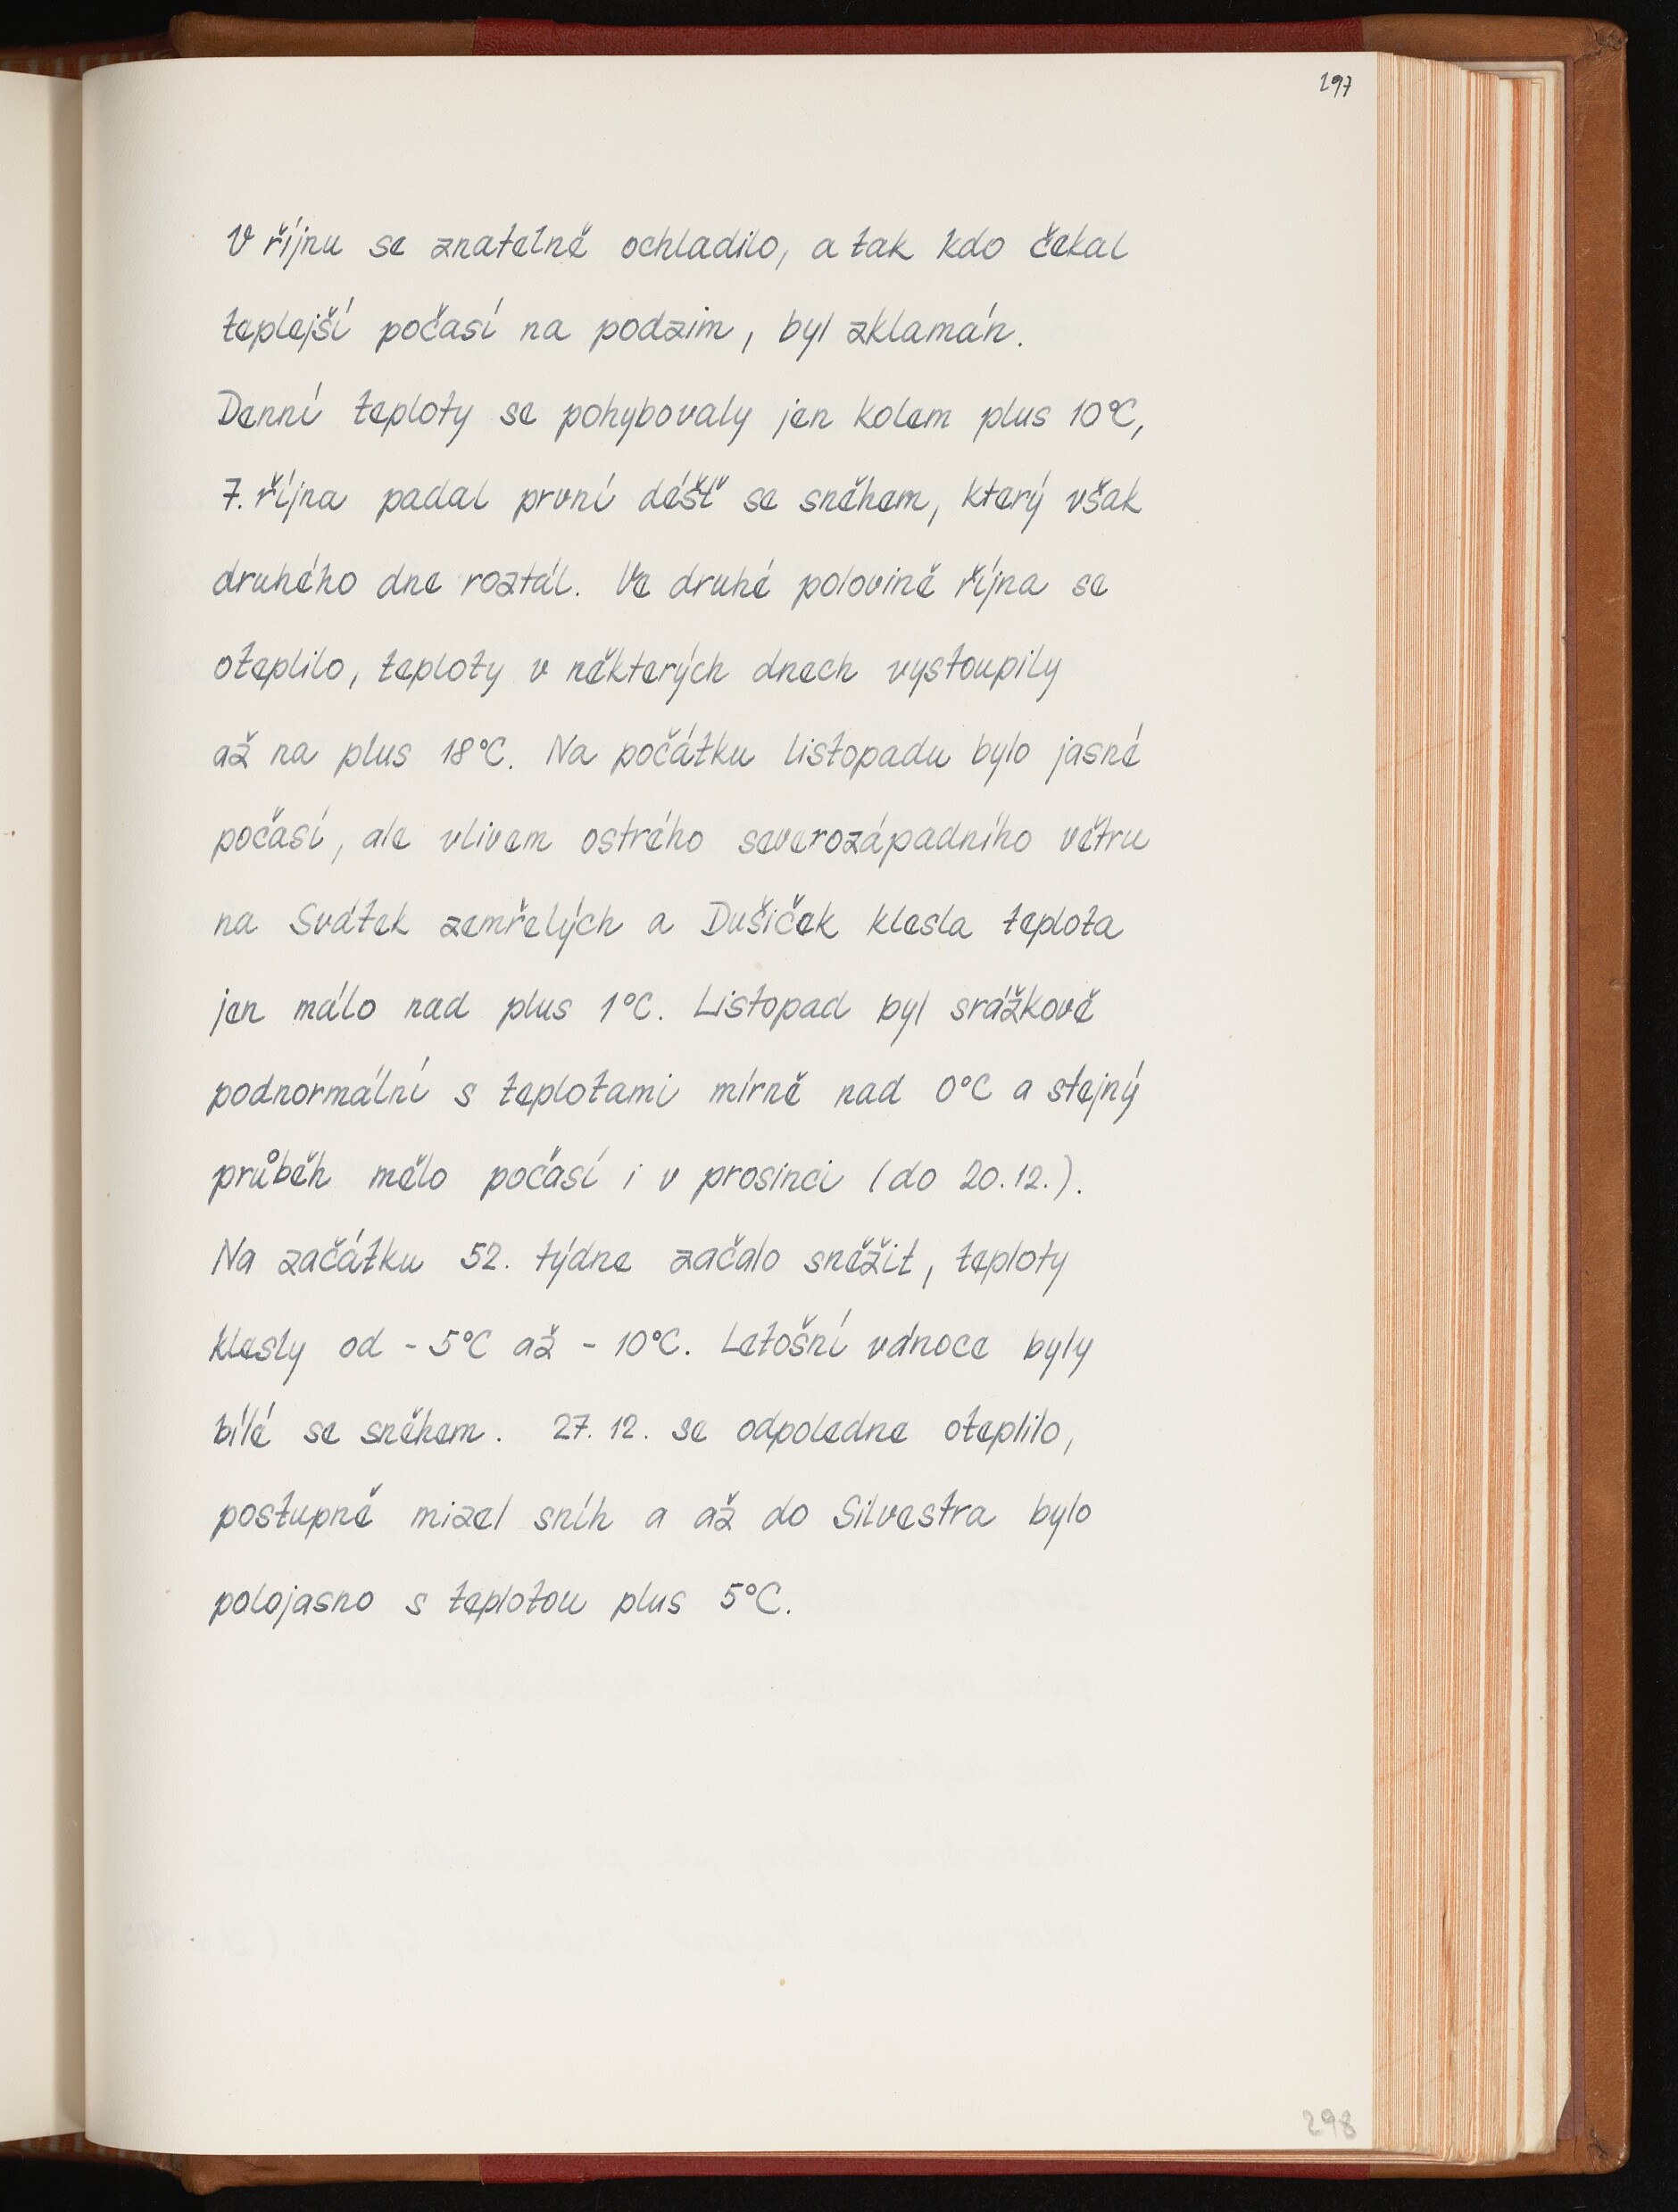 297
V říjnu se znatelně ochladilo, a tak kdo čekal
teplejší počasí na podzim, byl zklamán.
Denní teploty se pohybovaly jen kolem plus 10°C,
7. října padal první déšť se sněhem, který však
druhého dne roztál. Ve druhé polovině října se
oteplilo, teploty v některých dnech vystoupily
až na plus 18°C. Na počátku listopadu bylo jasné
počasí, ale vlivem ostrého severozápadního větru
na Svátek zemřelých a Dušiček klesla teplota
jen málo nad plus 1°C. Listopad byl srážkově
podnormální s teplotami mírně nad 0°C a stejný
průběh mělo počasí i v prosinci (do 20.12.).
Na začátku 52. týdne začalo sněžit, teploty
klesly od -5°C až -10°C. Letošní vánoce byly
bílé se sněhem. 27. 12. se odpoledne oteplilo,
postupně mizel sníh a až do Silvestra bylo
polojasno s teplotou plus 5°C.
298